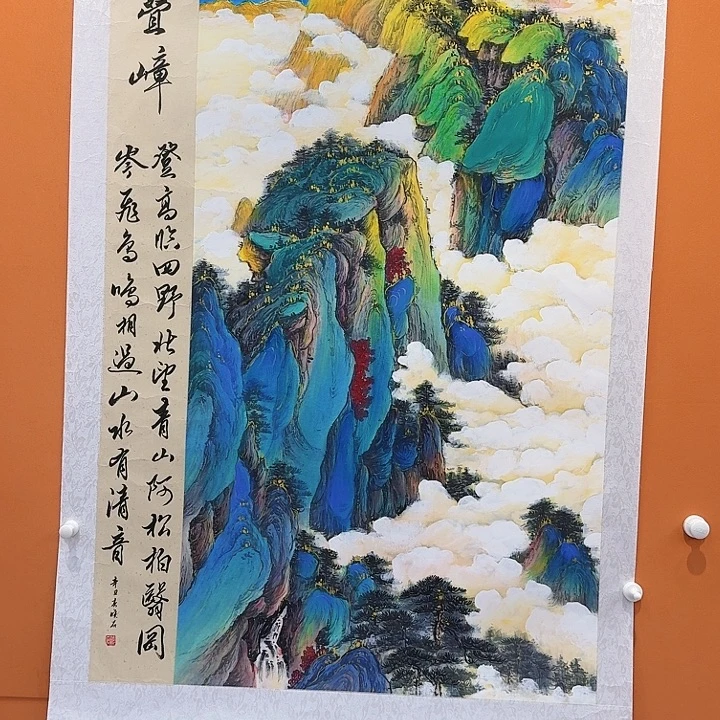 疊嶂
登高臨四野北望青山阿松柏翳岡
岑飛鳥鳴相過山水有清音
辛丑